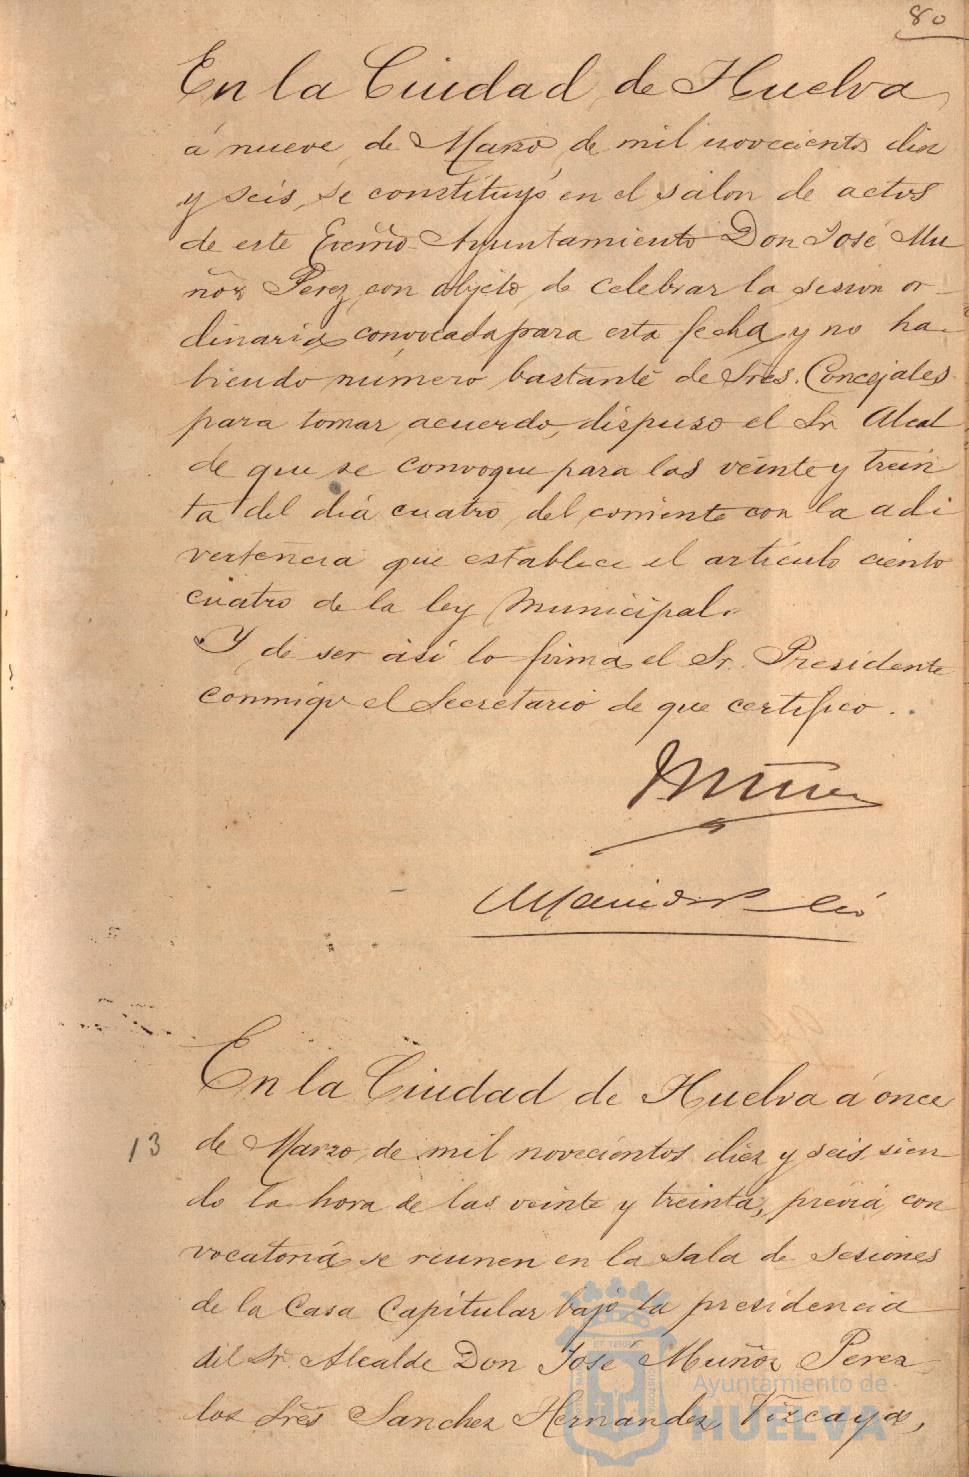 80
En la Ciudad de Huelva
á nueve de Marzo de mil novecientos diez
y seis, se constituyó en el salon de actos
de este Excmo Ayuntamiento Don José Mu
ñoz Perez con objeto de celebrar la sesion or-
dinaria convocada para esta fecha y no ha-
biendo número bastante de Sres. Concejales
para tomar acuerdo, dispuso el Sr Alcal
de que se convoque para las veinte y trein
ta del dia cuatro del corriente con la adi
vertencia que establece el articulo ciento
cuatro de la ley Municipal.
Y de ser asi lo firma el Sr. Presidente
conmigo el Secretario de que certifico.
Muñoz
En la Ciudad de Huelva á once
13 de Marzo de mil novecientos diez y seis sien-
do la hora de las veinte y treinta, prévia con
vocatoria se reunen en la Sala de Sesiones
de la Casa Capitular bajo la presidencia
del Sr. Alcalde Don José Muñoz Perez
los Sres Sanchez Hernandez, Vizcaya,
Ayuntamiento de
HUELVA